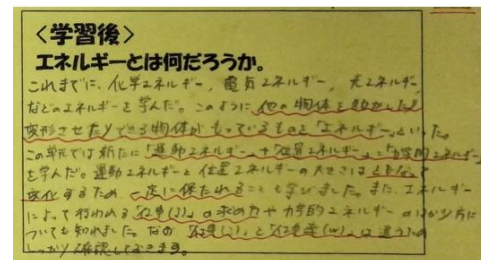 ＜学習後＞
エネルギーとは何だろうか。
これまでに、化学エネルギー，電気エネルギー，光エネルギー
などのエネルギーを学んだ。このように他の物体を動かしたり
変形させたりできる物体がもっているものを「エネルギー」といった。
この単元では新たに「運動エネルギー」+「位置エネルギー」=「力学的エネルギー」
を学んだ。運動エネルギーと位置エネルギーの大きさは
変化するため一定に保たれることも学びました。また、エネルギー
によって行われる「仕事(J)」の求め方や力学的エネルギーのはかり方に
ついても知れました。なお「仕事(J)」と「仕事率(W)」は違うので
しっかり確認しておきます。